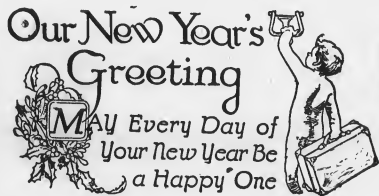 Our New Year's
Greeting
MAy Every Day of
Your New Year Be
a Happy One